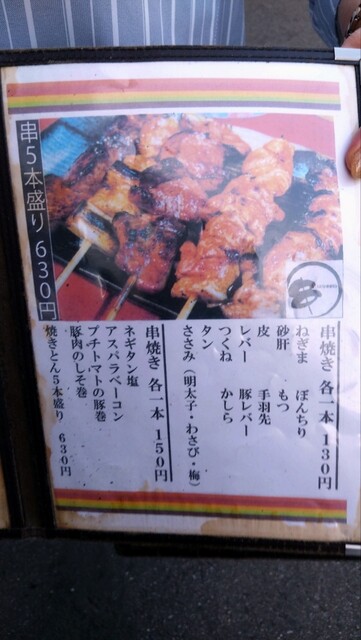 串5本盛り 630円
串焼き 各一本 130円
ねぎま ぼんちり
砂肝 もつ
皮 手羽先
レバー 豚レバー
つくね かしら
タン
ささみ（明太子・わさび・梅）
串焼き 各一本 150円
ネギタン塩
アスパラベーコン
プチトマトの豚巻
豚肉のしそ巻
焼きとん5本盛り 630円